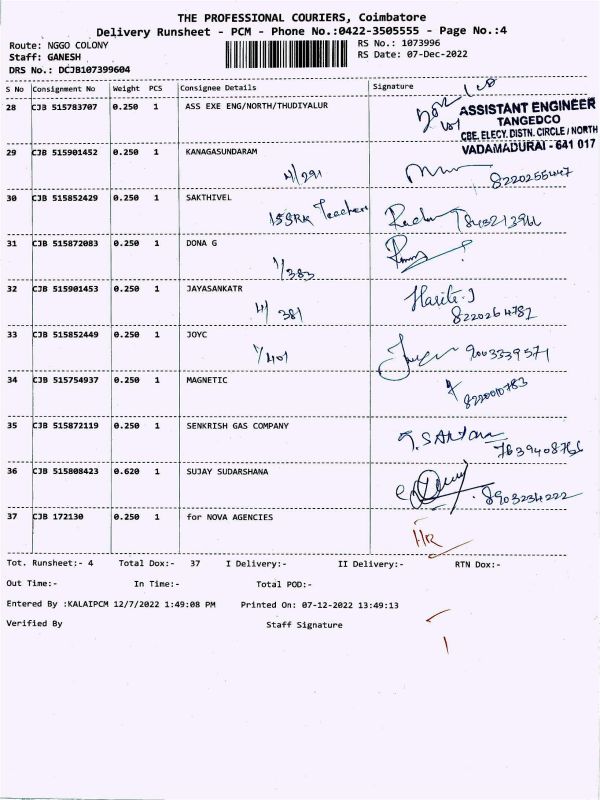 THE PROFESSIONAL COURIERS, Coimbatore
Delivery Runsheet - PCM - Phone No.:0422-3505555 - Page No.:4
Route: NGGO COLONY RS No.: 1073996
Staff: GANESH RS Date: 07-Dec-2022
DRS No.: DCJB107399604
S No Consignment No Weight PCS Consignee Details Signature
28 CJB 515783707 0.250 1 ASS EXE ENG/NORTH/THUDIYALUR
ASSISTANT ENGINEER
TANGEDCO
CBE. ELECY. DISTN. CIRCLE / NORTH
VADAMADURAI - 641 017
29 CJB 515901452 0.250 1 KANAGASUNDARAM
4/291 8220255447
30 CJB 515852429 0.250 1 SAKTHIVEL
Teachers
31 CJB 515872083 0.250 1 DONA G
1/383
32 CJB 515901453 0.250 1 JAYASANKATR
4/381 Harite.J
8220264782
33 CJB 515852449 0.250 1 JOYC
1/401 9003339571
34 CJB 515754937 0.250 1 MAGNETIC
8220010783
35 CJB 515872119 0.250 1 SENKRISH GAS COMPANY
7639408766
36 CJB 515808423 0.620 1 SUJAY SUDARSHANA
8903234222
37 CJB 172130 0.250 1 for NOVA AGENCIES
HR
Tot. Runsheet:- 4 Total Dox:- 37 I Delivery:- II Delivery:- RTN Dox:-
Out Time:- In Time:- Total POD:-
Entered By :KALAIPCM 12/7/2022 1:49:08 PM Printed On: 07-12-2022 13:49:13
Verified By Staff Signature